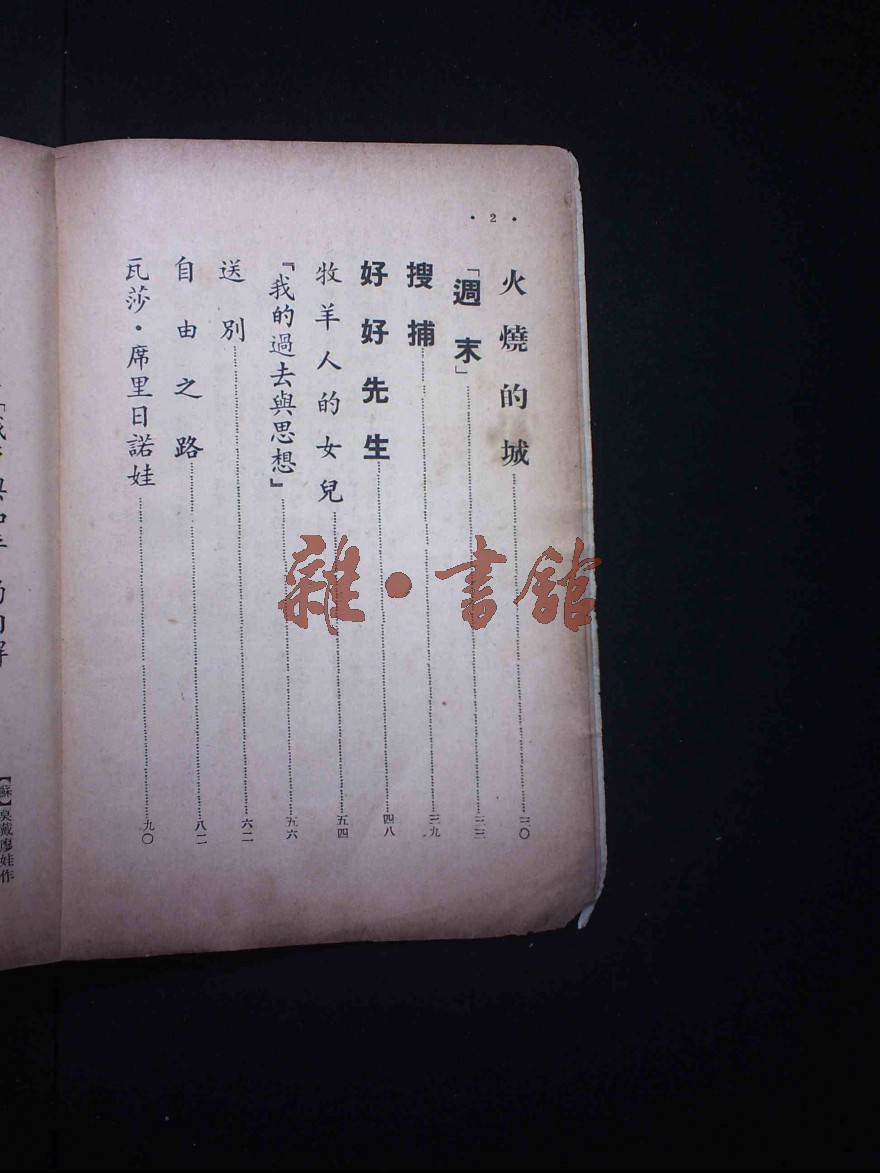 • 2 •
火燒的城……三〇
「週末」……三三
搜捕……三九
好好先生……四八
牧羊人的女兒……五四
『我的過去與思想』……五六
送別……六二
自由之路……八二
瓦莎・席里日諾娃……九〇
【蘇】莫戴廖娃作
雜・書館